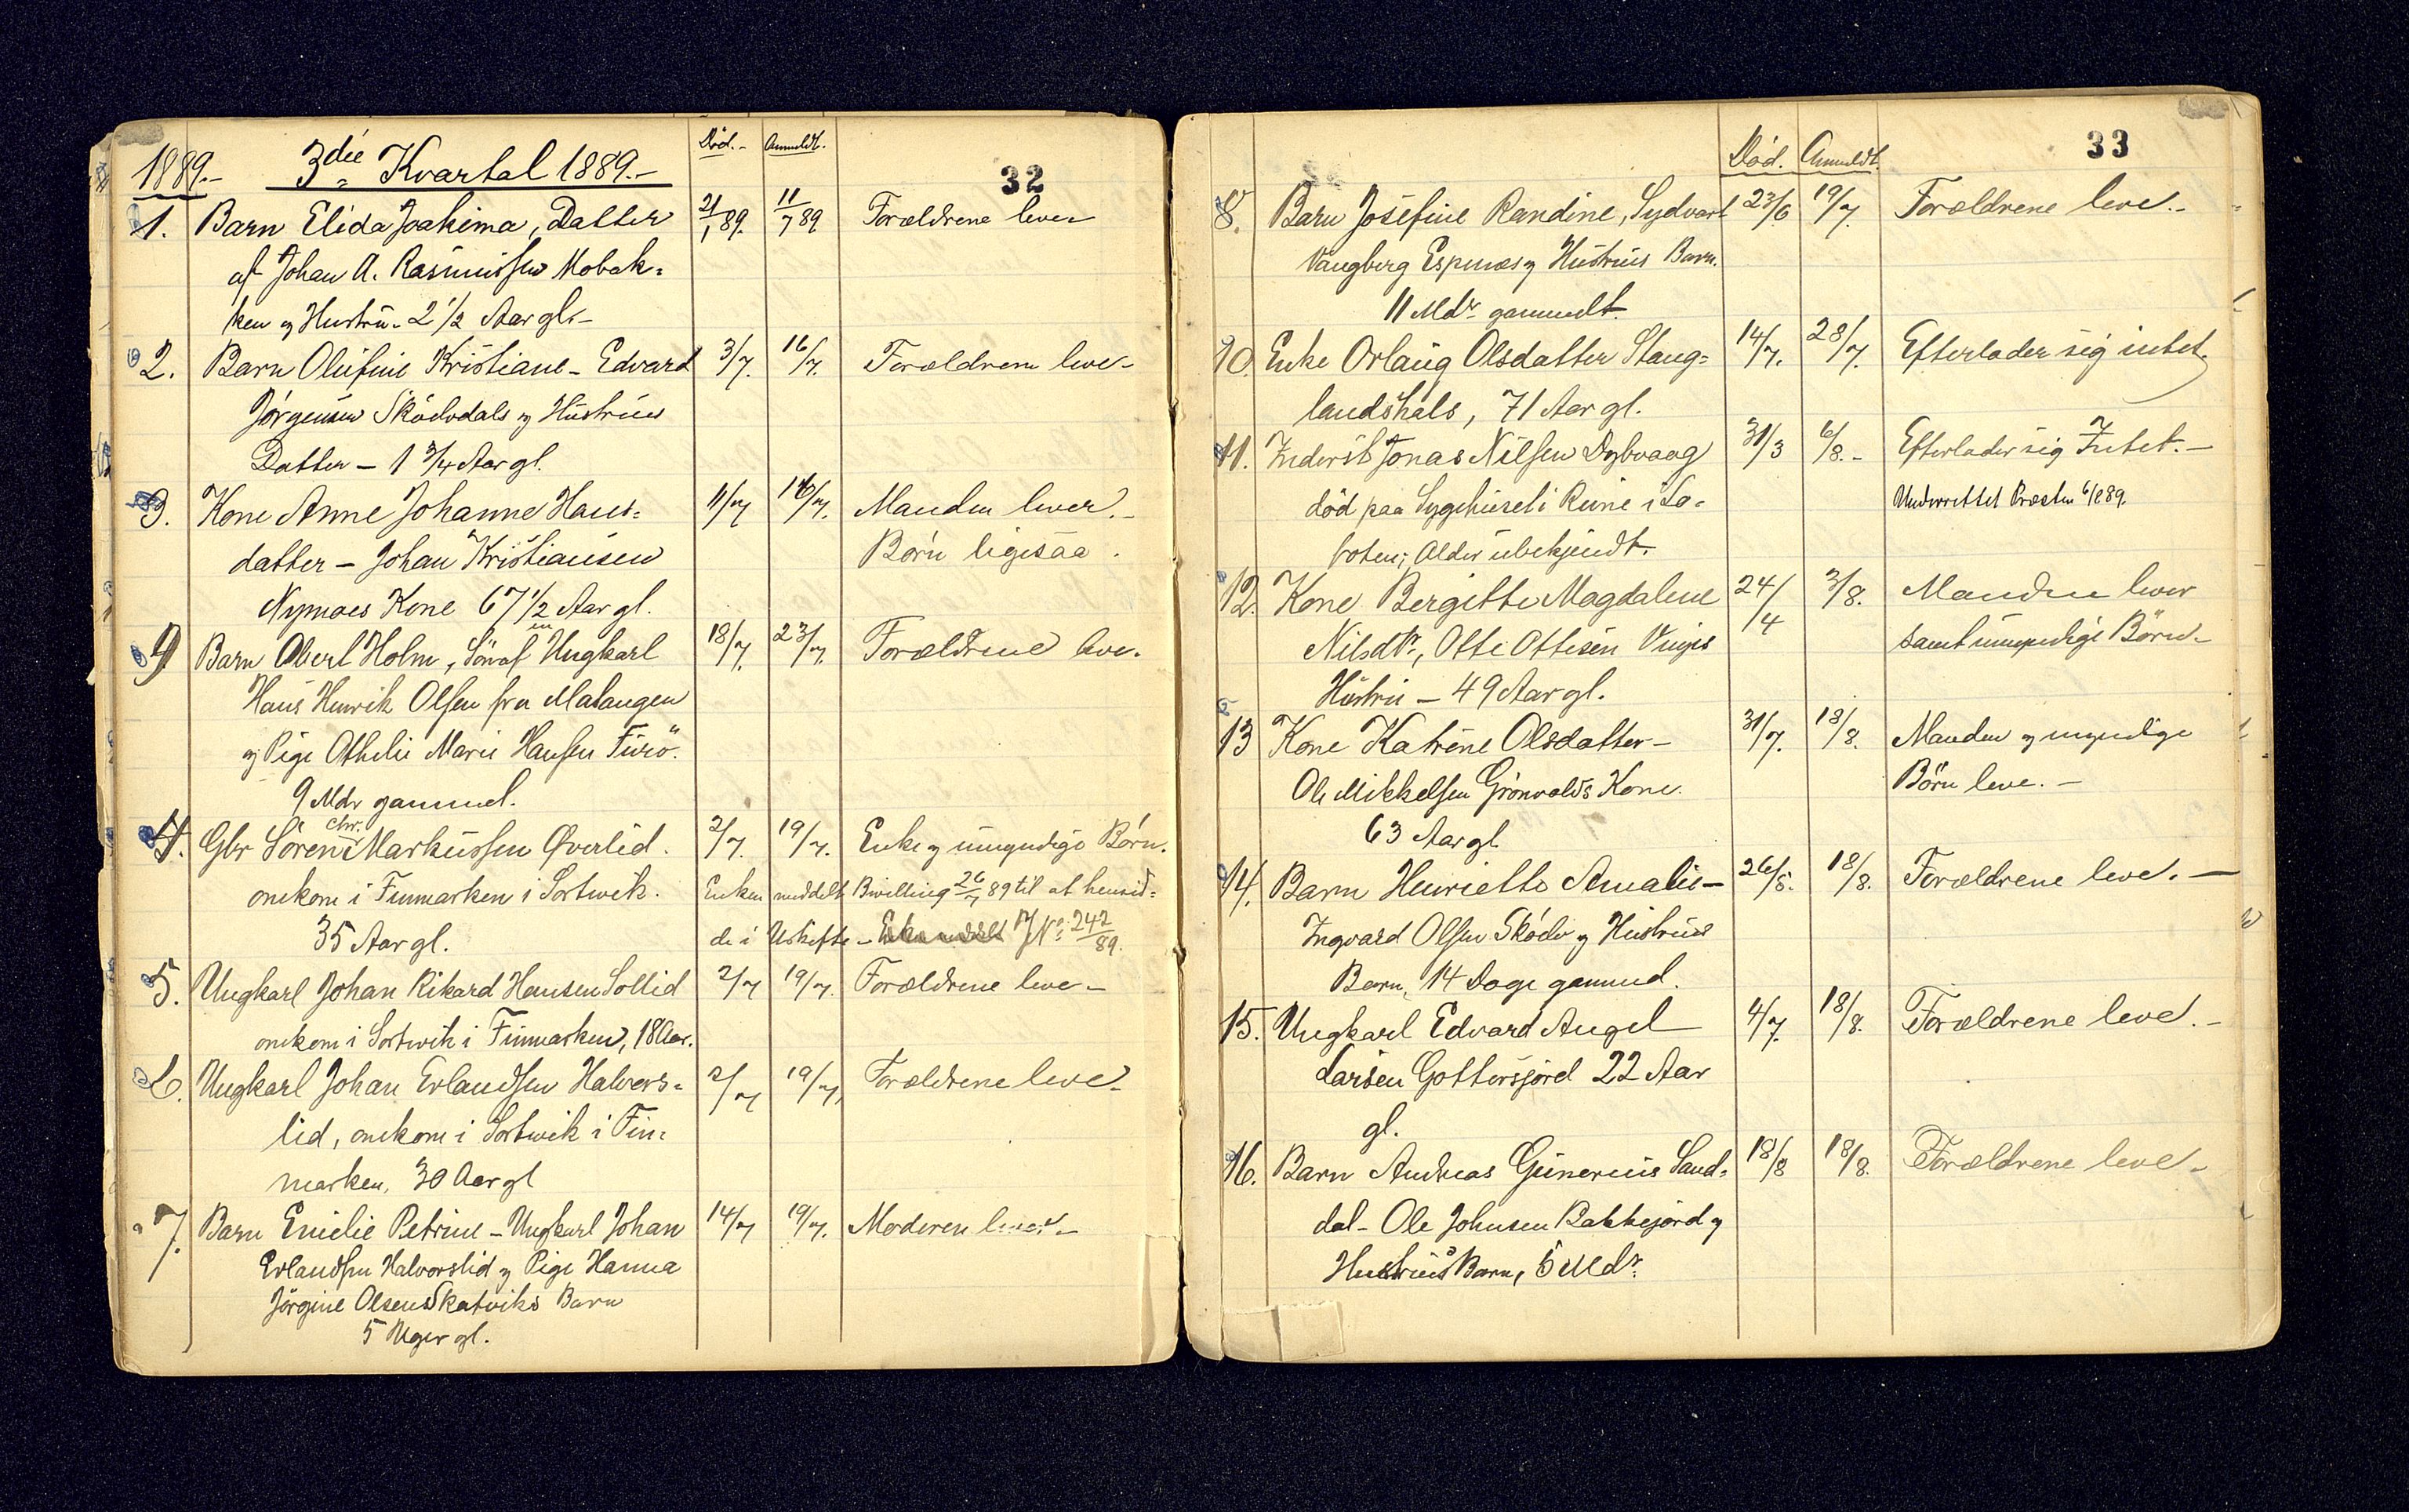 32
1889.- 3die Kvartal 1889.- Död.- Anmeldt.
1. Barn Elida Joakima, Datter 21/1 89. 11/7 89 Forældrene lever
af Johan A. Rasmussen Mobak=
ken og Hustru. 2 1/2 Aar gl.-
2. Barn Olufine Kristiane - Edvard 3/7. 16/7. Forældrene leve-
Jörgensen Sködvdals og Hustrues
Datter - 1 3/4 Aar gl.
3. Kone Anne Johanne Hans= 11/7 16/7. Manden lever.-
datter - Johan Kristiansen Börn ligesaa.
Nymoes Kone 67 1/2 Aar gl.
4 Barn Overt Holm, Sön af Ungkarl 18/7. 23/7. Forældrene leve.
Hans Henrik Olsen fra Malangen
og Pige Othelie Marie Hansen Furö.
9 Mdr gammel.
4. Gbr Sören Chr. Markussen Øverlid. 2/7. 19/7. Enke og umyndige Börn.
omkom i Finmarken i Sortvik. Enken meddelt Bevilling 26/7 89 til at hensid=
35 Aar gl. de i Uskifte - JN: 242/89.
5. Ungkarl Johan Rikard Hansen Sollid 2/7 19/7. Forældrene leve-
omkom i Sortvik i Finmarken, 18 Aar.
6. Ungkarl Johan Erlandsen Halvors= 2/7 19/7, Forældrene leve-
lid, omkom i Sortvik i Fin=
marken, 30 Aar gl
7. Barn Emelie Petrine - Ungkarl Johan 14/7 19/7. Moderen lever-
Erlandsen Halvorslid og Pige Hanna
Jörgine Olsens Skatviks Barn
5 Uger gl.
33
Död. Anmeldt.
8. Barn Josefine Randine, Sydvart 23/6 19/7. Forældrene leve.-
Vangberg Espenes og Hustrues Barn.
11 Mdr gammelt.
10. Enke Orlaug Olsdatter Stang= 14/7. 28/7. Efterlader sig intet.
landshals, 71 Aar gl.
11. Inderst Jonas Nilsen Dybvaag 31/3 6/8.- Efterlader sig Intet.-
död paa Sygehuset i Reine i Lo= Underrettet Præsten 6/8 89.
foten; Alder ubekjendt.
12. Kone Bergitte Magdalene 24/4 3/8. Manden lever
Nilsdtr, Otte Ottesen Vinjes samt umyndige Börn-
Hustru - 49 Aar gl.
13 Kone Katrine Olsdatter- 31/7. 18/8. Manden og myndige
Ole Mikkelsen Grönvolds Kone. Börn leve.-
63 Aar gl.
14. Barn Henriette Amalie- 26/5. 18/8. Forældrene leve.-
Ingvard Olsen Sködv og Hustrues
Barn, 14 Dage gammel.
15. Ungkarl Edvard Angel 4/7. 18/8. Forældrene leve.-
Larsen Gottersjord 22 Aar
gl.
16. Barn Andreas Gunerius Sand= 18/8 18/8. Forældrene leve-
dal - Ole Johnsen Bakkejord og
Hustrues Barn, 6 Mdr.